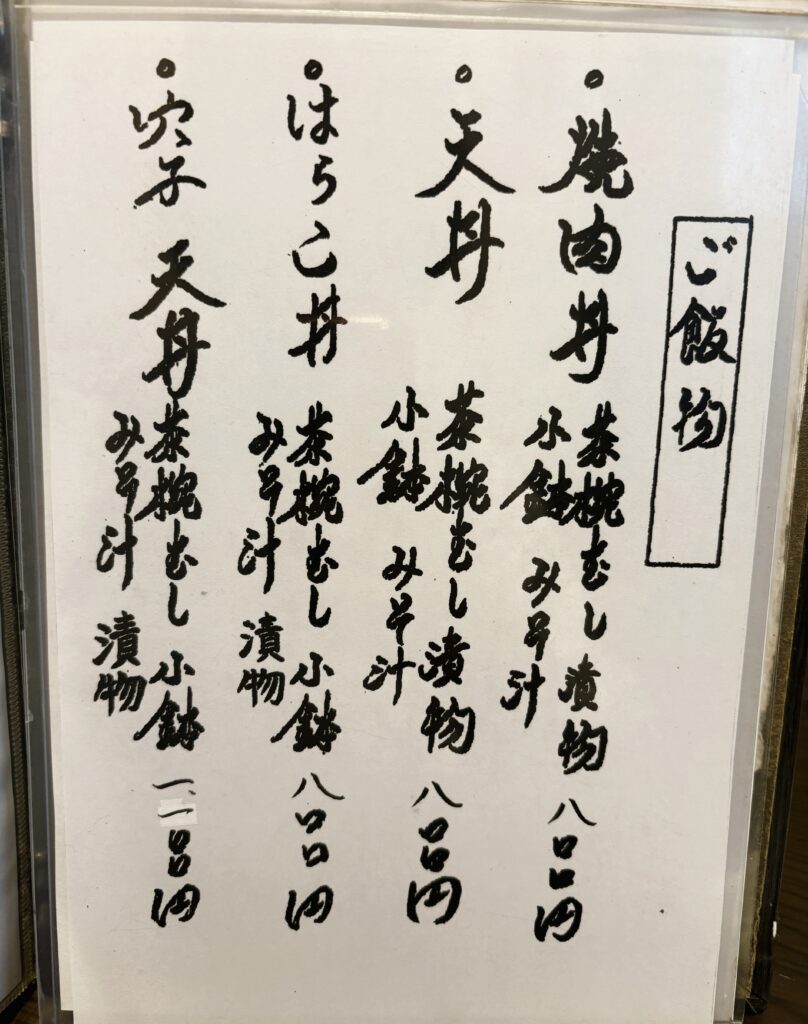 ご飯物
○焼肉丼
茶椀むし 漬物 八〇〇円
小鉢 みそ汁
○天丼
茶椀むし 漬物 八〇〇円
小鉢 みそ汁
○はらこ丼
茶椀むし 小鉢 八〇〇円
みそ汁 漬物
○穴子天丼
茶椀むし 小鉢 一、一〇〇円
みそ汁 漬物